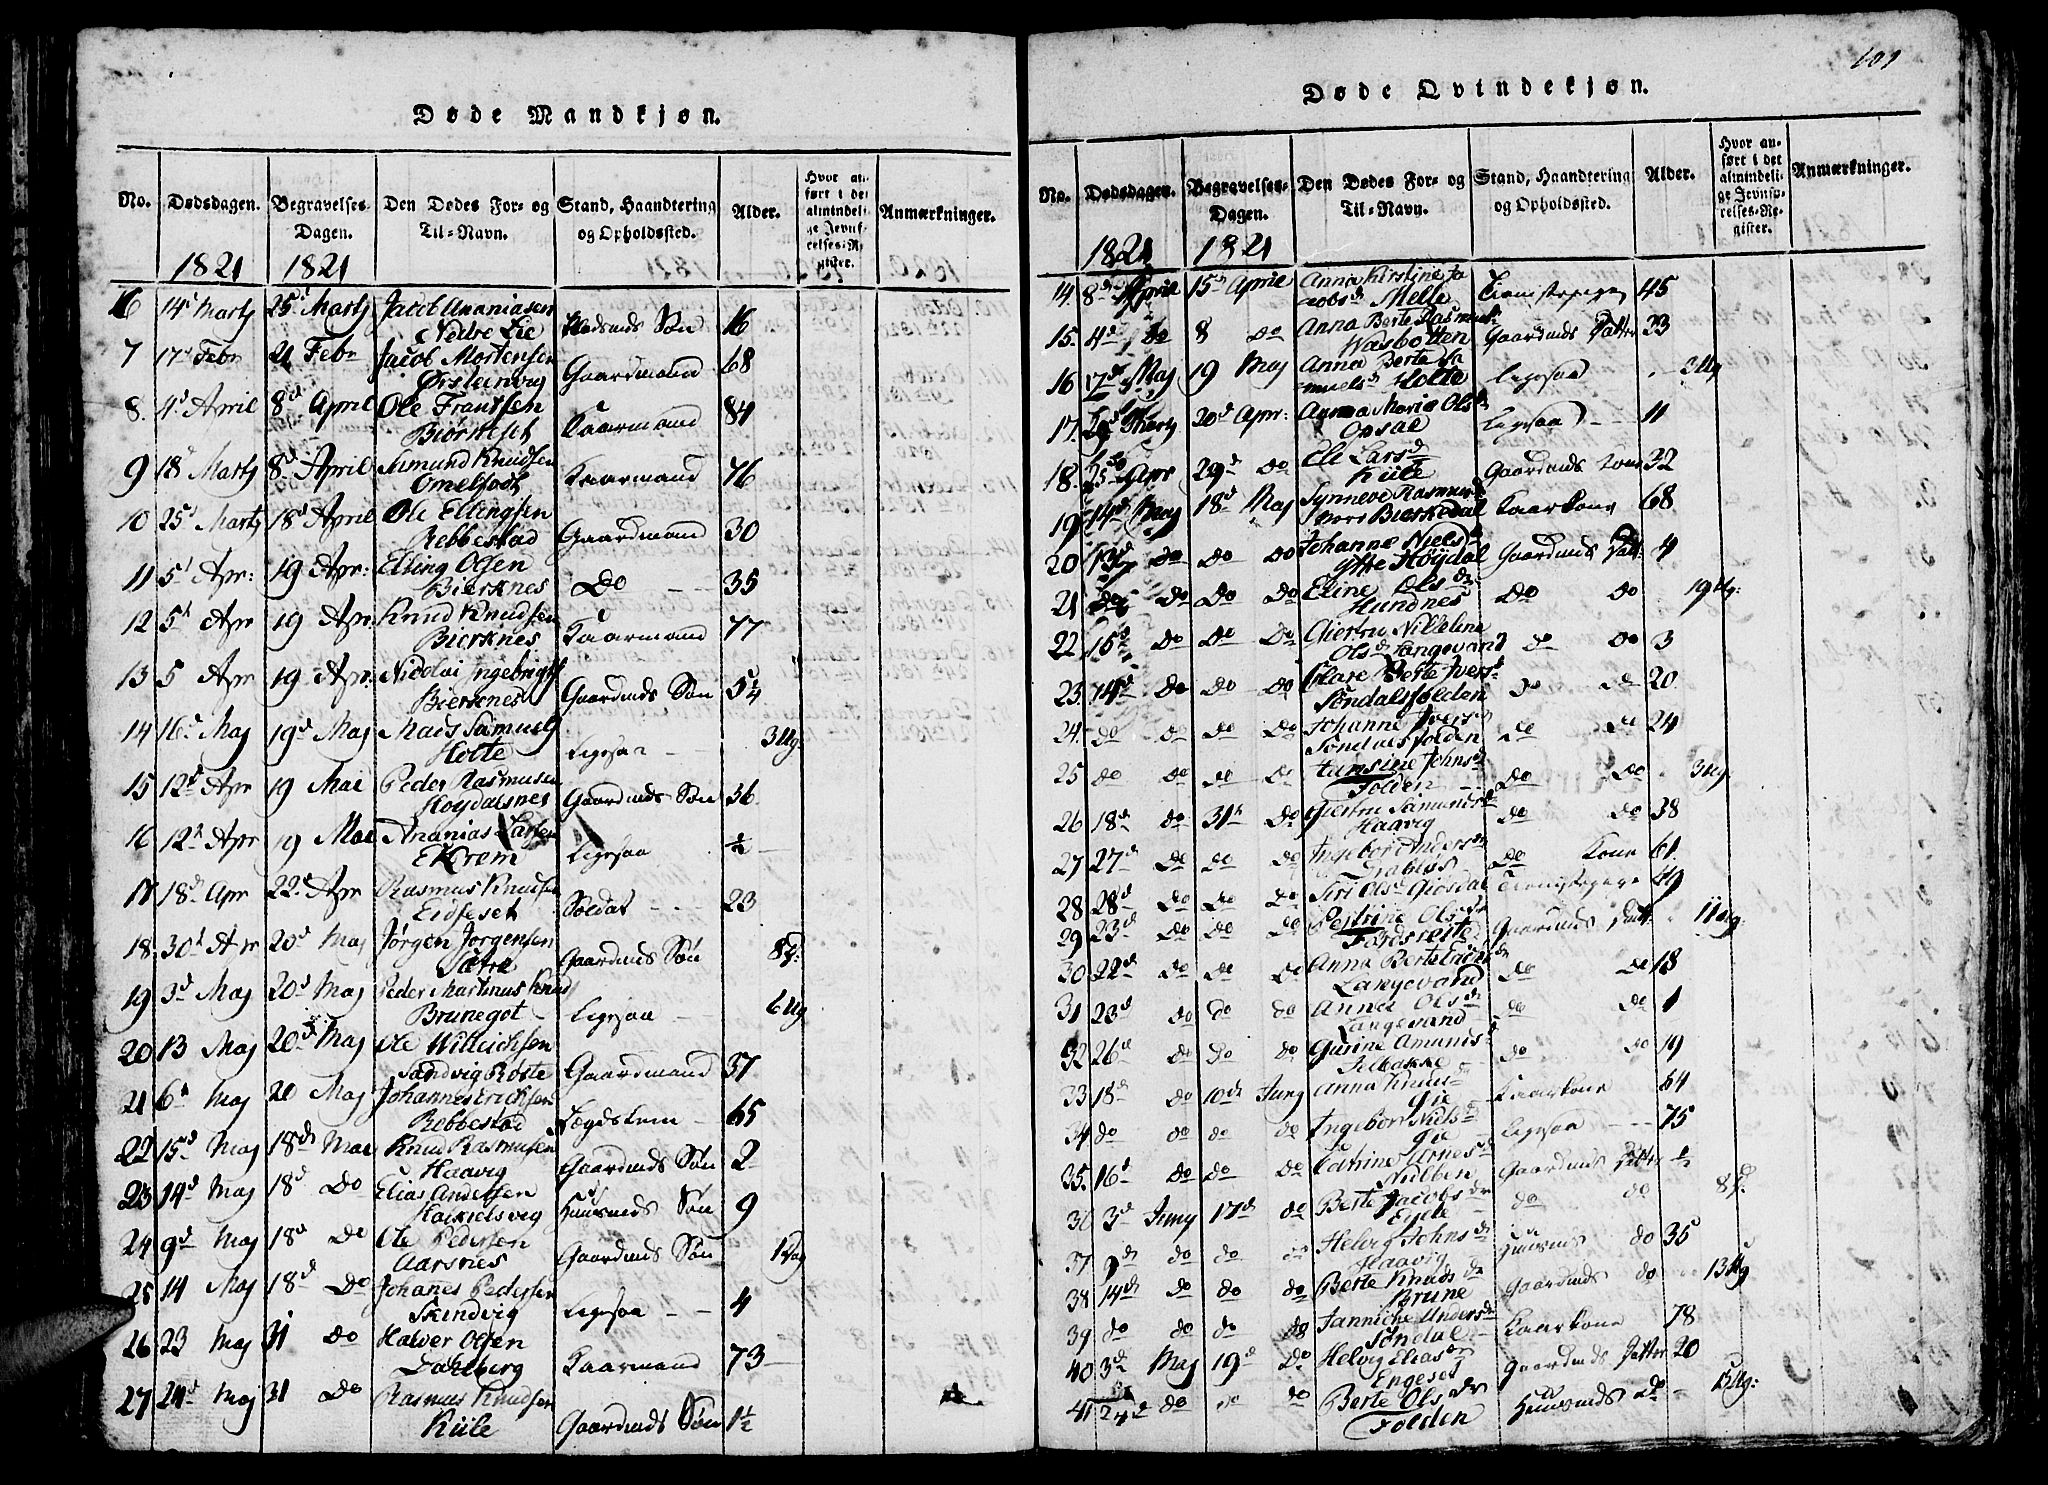 Døde Mandkjøn.
No. Dødsdagen. Begravelses-Dagen. Den Dødes For- og Til-Navn. Stand, Haandtering og Opholdssted. Alder. Hvor anført i det almindelige Jevnførelses-Register. Anmærkninger.
1821 1821
6 14d Martj 25d Martj Jacob Ananiasen Nedre Lie Søn 16
7 17d Febr 21 Febr Jacob Mortensen Ørstenvig Gaardmand 68
8. 4d April 8d April Ole Frantsen Biørneset Kaarmand 84
9 18d Martj 8d April Knudsen Omelfoot Kaarmand 76
10 25d Martj 18d April Ole Ellingsen Rebbestad Gaardmand 30
11 5d Apr: 19 Apr: Elling Olsen Bierknes Do 35
12 5d Apr 19 Apr: Knud Knudsen Bierknes Kaarmand 77
13 5 Apr 19 Apr: Nicolai Ingebrigts Bierknes Gaardmds Søn 5¼
14 16d Maj 19d Maj Mads Samuels Holte Ligesaa 3 Ug:
15 12d Apr 19 Mai Peder Rasmusen Høydalsnes Gaardmds Søn 36
16 12d Apr 19 Mai Ananias Larsen Ekrem Ligesaa ½
17 18d Apr 22d Apr Rasmus Knudsen Eidseset Soldat 23
18. 30d Apr 20d Maj Jørgen Jørgensen Sætre Gaardmds Søn 8
19 3d Maj 20d Maj Peder Martinus Knuds Brunegot Ligesaa 6 Ug
20 13 Maj 20d Maj Ole Sandvig Gaardmand 37
21 6d Maj 20 Maj Johannes Erichsen Rebbestad Lægdslem 65
22 15d Maj 18de Mai Knud Rasmusen Haavig Gaardmds Søn 2
23 14d Maj 18d Do Elias Andersen Huusmds Søn 9
24 9d Maj 18d Do Ole Pedersen Aarsnes Gaardmds Søn 1 Dag
25 14 Maj 18d Do Johanes Pedersen Skindvig Ligesaa 4
26 23 Maj 31 Do Halver Olsen Dahlberg Kaarmand 73
27 24d Maj 31 Do Rasmus Knudsen Kiile Gaardmds Søn 1½
101
Døde Qvindekjøn.
No. Dødsdagen. Begravelses-Dagen. Den Dødes For- og Til-Navn. Stand, Haandtering og Opholdssted. Alder. Hvor anført i det almindelige Jevnførelses-Register. Anmærkninger.
1821 1821
14. 8d April 15d April Anna Kirstine Jacobsd Melle Tienistepige 45
15. 4d do 8 Do Anna Berte Rasmusd Wasbotten Gaardmds Datter 23
16 17d Maj 19 Maj Anna Berte Samuelsd Holte Ligesaa 3 Ug
17. Martj 20d Apr: Anna Maria Olsd Opsal Ligesaa 11
18. 25 Apr 29d Do Eli Larsd Kiile Gaardmds Kone 32
19 14d Maj 18d Maj Synneve Rasmusd Bierkedal Kaarkone 68
20 13d Do Do Do Johanne Nielsd Yttre Høydal Gaardmds Datt: 4
21 do do Do Do Eline Olsd Hundnes Do Do 19 Ug:
22 15d do Do Do Giertru Nilleline Olsd Langevand do Do 3
23. 14d do Do Do Berte Iversd Søndalsfolden do do 20
24. do do do do Johanne Iversd Søndalsfolden do do 24
25 do do do do Johnsd Folden do do 3 Ug
26 18d do 31te do Giertru Simundsd Haavig do do 38
27 27d do do do Ingebor Andersd do Kone 61
28 28d do do do Siri Olsd Giøsdal Tienistepige 49
29 23d do do do Petrine Olsd Gaardmds Datt: 11 Ug
30 22d do do do Anna Langevand do do 18
31 23d do do do Anne Olsd Langevand do do 1
32 26d do do do Gurine Amundsd do do 19
33 18d do 10de Junj Anna Knudsd Øie Kaarkone 64
34 do do do do Ingebor Nielsd Øie Ligesaa 75
35. 16d do do Catrine Arnesd Nubben Gaardmds Datter ½
36 3d Junj 17d do Berte Jacobsd do do 8
37 9d do do do Helvig Johnsd Haavig Huusmds do 35
38 14d do do do Berte Knudsd Brune Gaardmds do 13 Ug
39 do do do do Jannicke Andersd Søndal Kaarkone 78
40 3d Maj 19d Do Helvig Eliasd Engeset Gaardmds Datter 20
41 24d do do do Berte Olsd Folden Huusmds do 13 Ug: